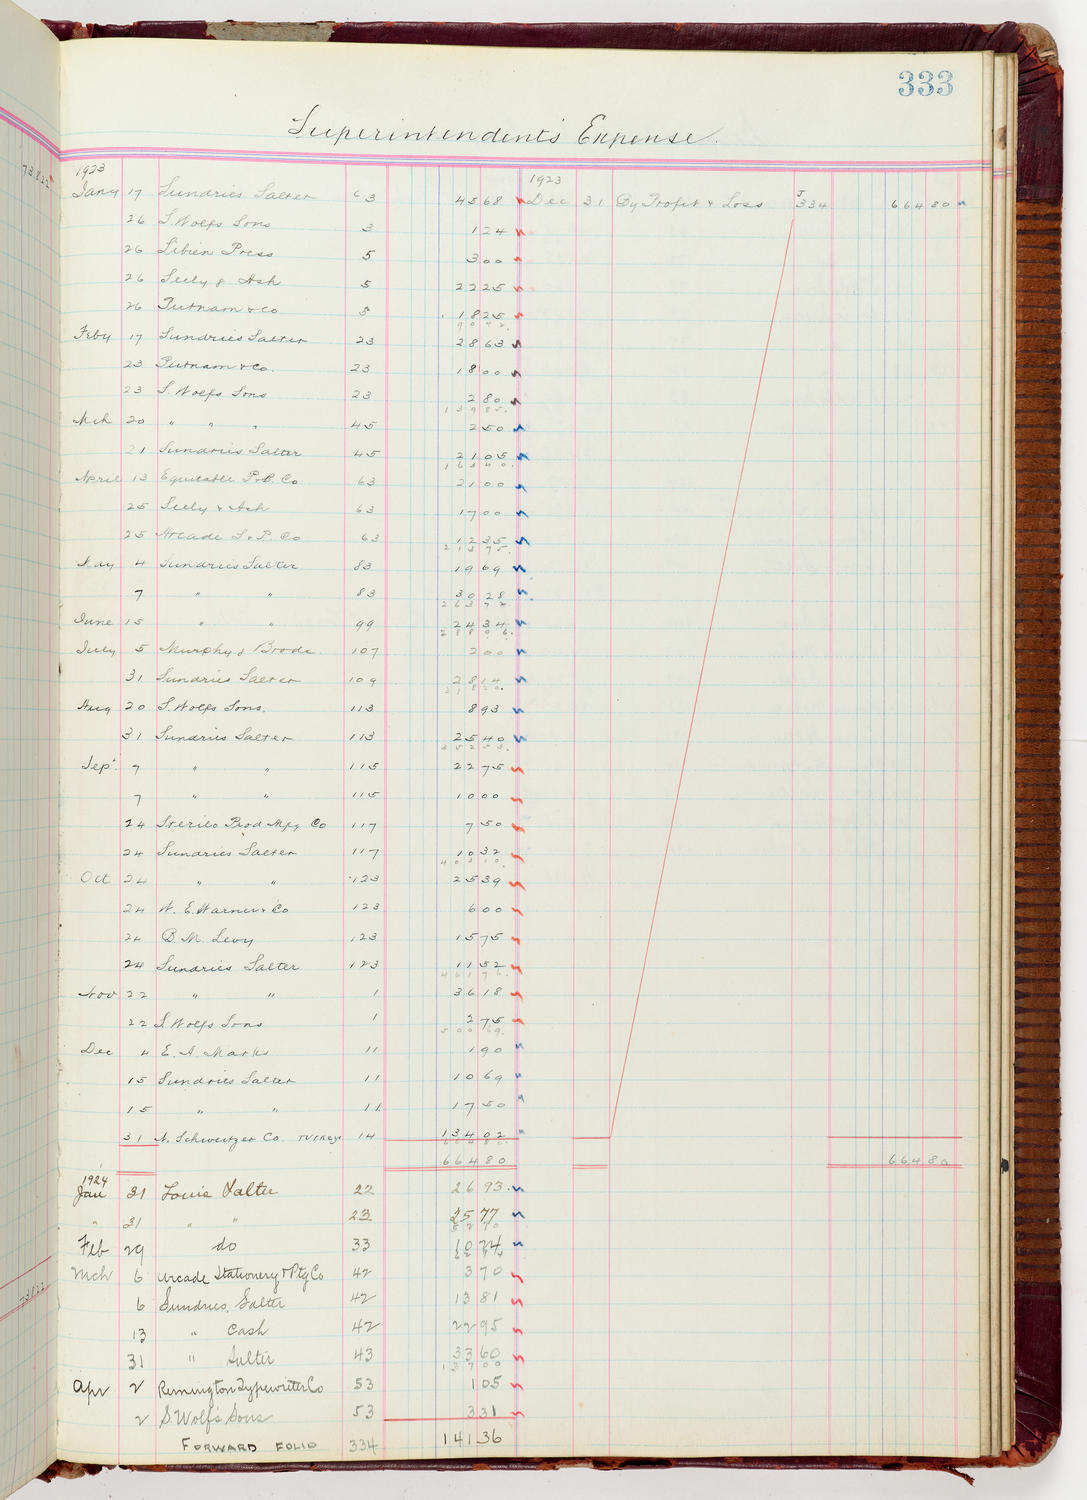 333
Superintendent's Expense.
1923 1923
Jany 17 Sundries Salter C 3 45 68 Dec 31 By Profit & Loss J 334 664 80
26 S. Wolfs Sons 3 1 24
26 Libien Press 5 3 00
26 Seely & Ash 5 22 25
26 Putnam & Co 5 18 25
90 42
Feby 17 Sundries Salter 23 28 63
23 Putnam & Co. 23 18 00
23 S. Wolfs Sons 23 2 80
139 85
Mch 20 " " " 45 2 50
21 Sundries Salter 45 21 05
163 40
April 13 Equitable P.&P. Co 63 21 00
25 Seely & Ash 63 17 00
25 Arcade S. & P. Co 63 12 35
213 75
May 4 Sundries Salter 83 19 69
7 " " 83 30 28
263 72
June 15 " " 99 24 34
288 06
July 5 Murphy & Brode 107 2 00
31 Sundries Salter 109 28 14
318 20
Aug 20 S. Wolfs Sons. 113 8 93
31 Sundries Salter 113 25 40
352 53
Sep't 7 " " 115 22 75
7 " " 115 10 00
24 Prod Mfg Co 117 7 50
24 Sundries Salter 117 10 32
403 10
Oct 24 " " 123 25 39
24 W. E. Warner & Co 123 6 00
24 B. M. Levy 123 15 75
24 Sundries Salter 123 11 52
461 76
Nov 22 " " 1 36 18
22 S. Wolfs Sons 1 2 75
500 69
Dec 4 E. A. Marks 11 1 90
15 Sundries Salter 11 10 69
15 " " 11 17 50
31 A. Schweitzer Co. Turkeys 14 134 02
664 80
664 80 664 80
1924
Jan 31 Louis Salter 22 26 93
" 31 " " 23 25 77
52 70
Feb 29 do 33 10 24
62 94
Mch 6 Arcade Stationery & Ptg Co 42 3 70
6 Sundries, Salter 42 13 81
13 " Cash 42 22 95
31 " Salter 43 33 60
137 00
Apr 2 Remington Typewriter Co 53 1 05
2 S. Wolf's Sons 53 3 31
Forward Folio 334 141 36